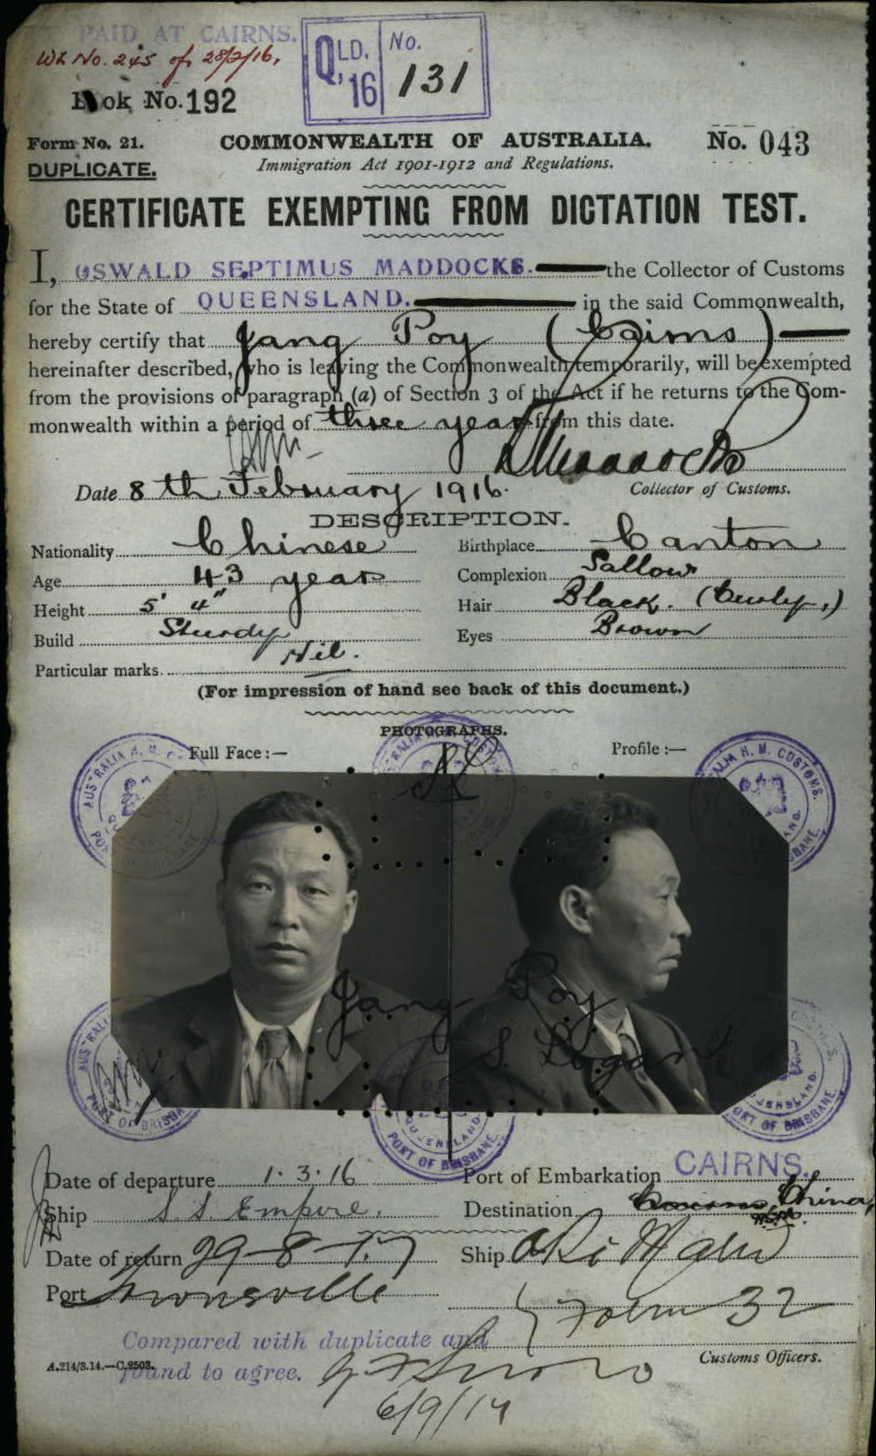 PAID AT CAIRNS.
No. 245 of 28/2/16,
QLD. '16 No. 131
Book No. 192
Form No. 21. COMMONWEALTH OF AUSTRALIA. No. 043
DUPLICATE. Immigration Act 1901-1912 and Regulations.
CERTIFICATE EXEMPTING FROM DICTATION TEST.
I, OSWALD SEPTIMUS MADDOCKS. the Collector of Customs
for the State of QUEENSLAND. in the said Commonwealth,
hereby certify that Jang Poy (Cairns)
hereinafter described, who is leaving the Commonwealth temporarily, will be exempted
from the provisions of paragraph (a) of Section 3 of the Act if he returns to the Com-
monwealth within a period of three years from this date.
Maddocks
Date 8th February 1916. Collector of Customs.
DESCRIPTION.
Nationality Chinese Birthplace Canton
Age 43 years Complexion Sallow
Height 5' 4" Hair Black. (Curly.)
Build Sturdy Eyes Brown
Particular marks. Nil.
(For impression of hand see back of this document.)
PHOTOGRAPHS.
Full Face :— Profile :—
Jang Poy
S. Logan
PORT OF BRISBANE
Date of departure 1.3.16 Port of Embarkation CAIRNS.
Ship S S Empire. Destination China
Date of return 29-8-17 Ship
Port Townsville
Form 32
Compared with duplicate and
found to agree.
A.214/3.14.—C.2503. Customs Officers.
6/9/17